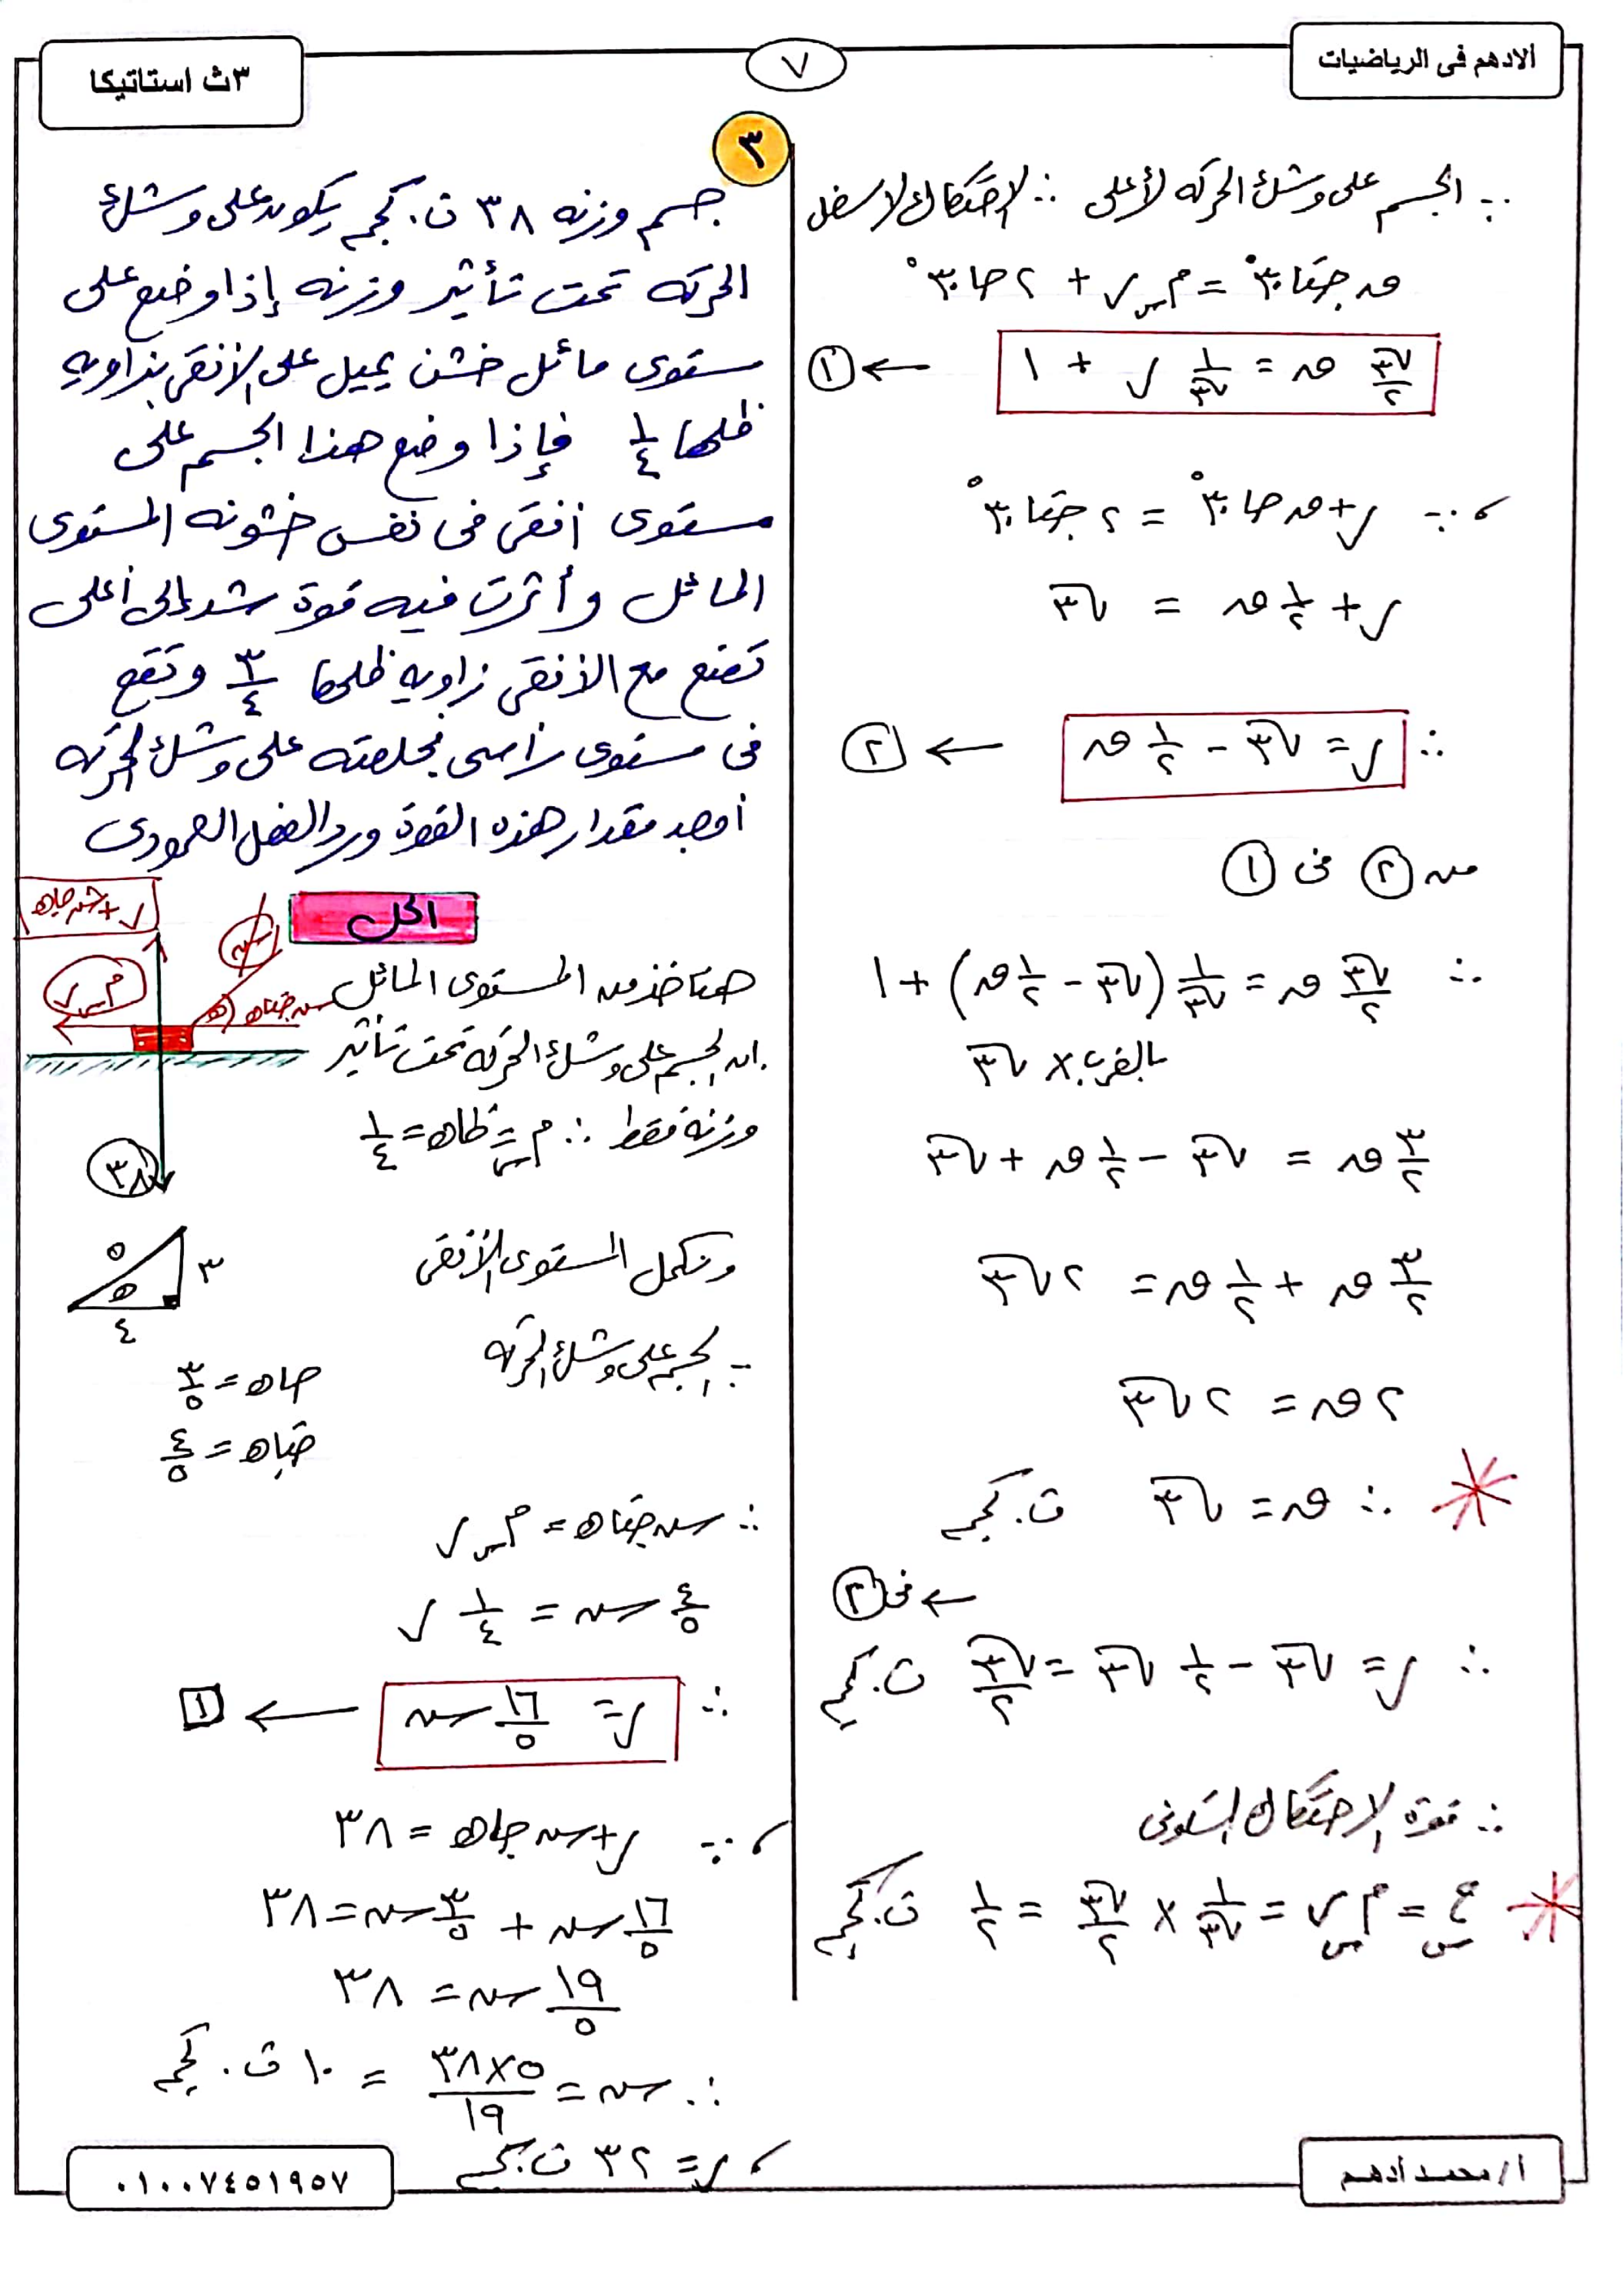 الادهم فى الرياضيات
٧
٣ث استاتيكا
∵ الجسم على وشك الحركه لأعلى ∴ الاحتكاك لاسفل
ق جتا ٣٠° = م س ر + ٢ حا ٣٠°
√٣/٢ ق = ١/√٣ ر + ١ ← ①
، ∵ ر + ق حا ٣٠° = ٢ جتا ٣٠°
ر + ١/٢ ق = √٣
∴ ر = √٣ - ١/٢ ق ← ②
من ② فى ①
∴ √٣/٢ ق = ١/√٣ (√٣ - ١/٢ ق) + ١
بالضرب × √٣
٣/٢ ق = √٣ - ١/٢ ق + √٣
٣/٢ ق + ١/٢ ق = ٢√٣
٢ ق = ٢√٣
∴ ق = √٣ ث.كجم
← فى ②
∴ ر = √٣ - ١/٢ √٣ = √٣/٢ ث.كجم
∴ قوة الاحتكاك السكونى
ح س = م س ر = ١/√٣ × √٣/٢ = ١/٢ ث.كجم
٣
جسم وزنه ٣٨ ث.كجم يكون على وشك
الحركه تحت تأثير وزنه إذا وضع على
مستوى مائل خشن يميل على الافقى بزاويه
ظلها ١/٤ فإذا وضع هذا الجسم على
مستوى افقى فى نفس خشونه المستوى
المائل وأثرت فيه قوة شد إلى أعلى
تصنع مع الافقى زاويه ظلها ٣/٤ وتقع
فى مستوى راسى فجعلته على وشك الحركه
اوجد مقدار هذه القوة ورد الفعل العمودى
الحل
ر + ش حاهـ
ش
م س ر
هـ
ش جتاهـ
٣٨
هناخد من المستوى المائل
ان الجسم على وشك الحركه تحت تأثير
وزنه فقط ∴ م س = ظاهـ = ١/٤
ونكمل المستوى الأفقى
٥
٣
هـ
٤
∵ الجسم على وشك الحركه
حاهـ = ٣/٥
جتاهـ = ٤/٥
∴ ش جتاهـ = م س ر
٤/٥ ش = ١/٤ ر
∴ ر = ١٦/٥ ش ← ١
، ∵ ر + ش حاهـ = ٣٨
١٦/٥ ش + ٣/٥ ش = ٣٨
١٩/٥ ش = ٣٨
∴ ش = ٣٨×٥/١٩ = ١٠ ث.كجم
، ر = ٣٢ ث.كجم
أ/محمد أدهم
٠١٠٠٧٤٥١٩٥٧